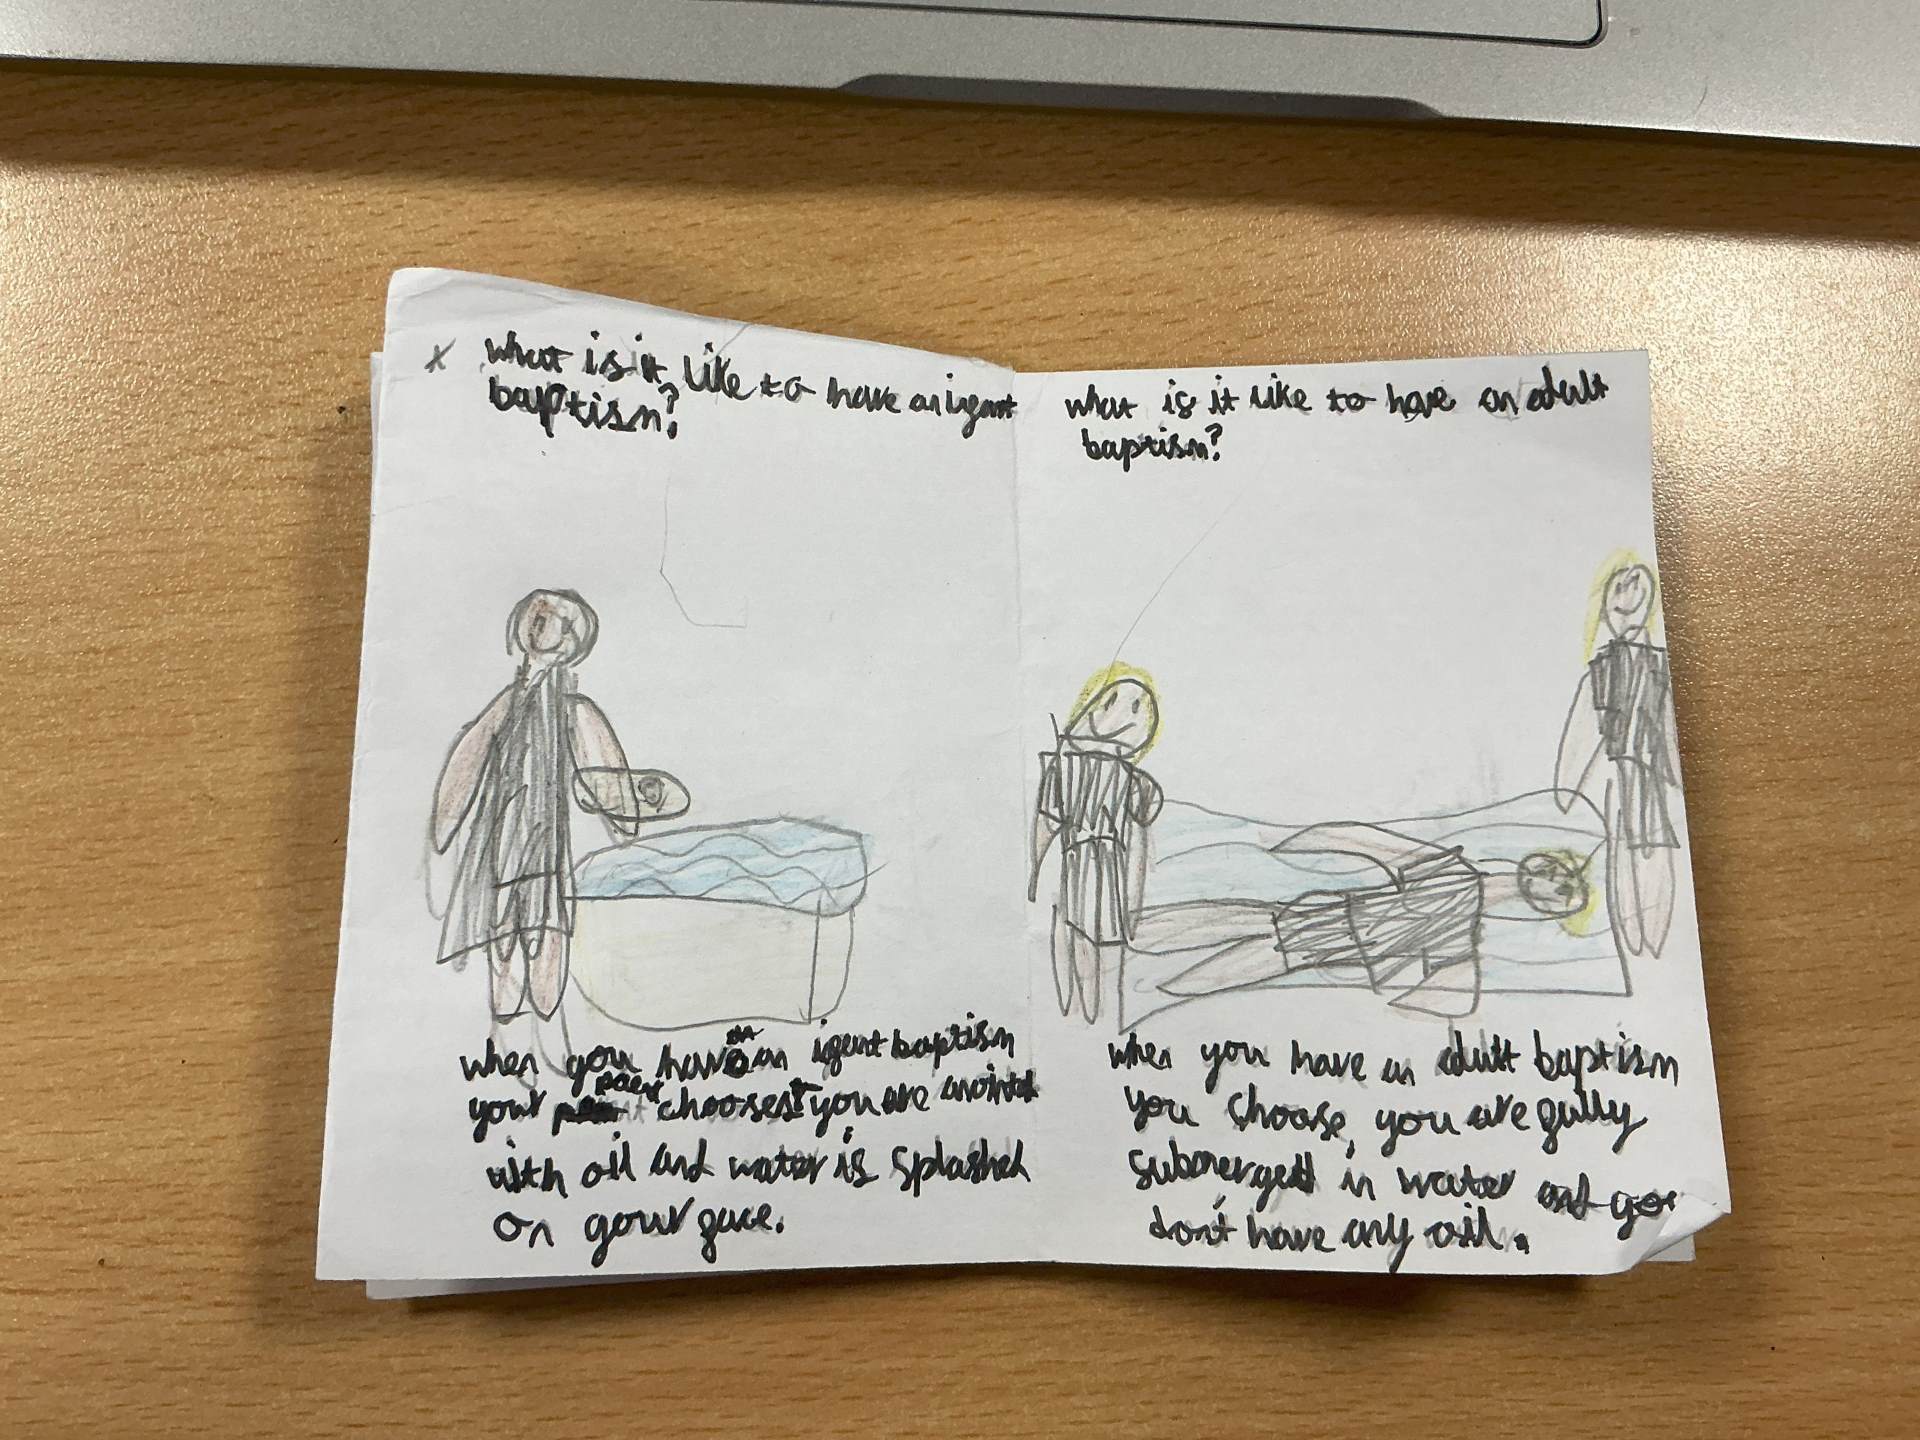 What is it like to have an ifant
baptism?
when you have an ifent baptism
your paent chooses, you are anointed
with oil and water is splashed
on your face.
what is it like to have an adult
baptism?
when you have an adult baptism
you choose, you are fully
submerged in water and you
don't have any oil.